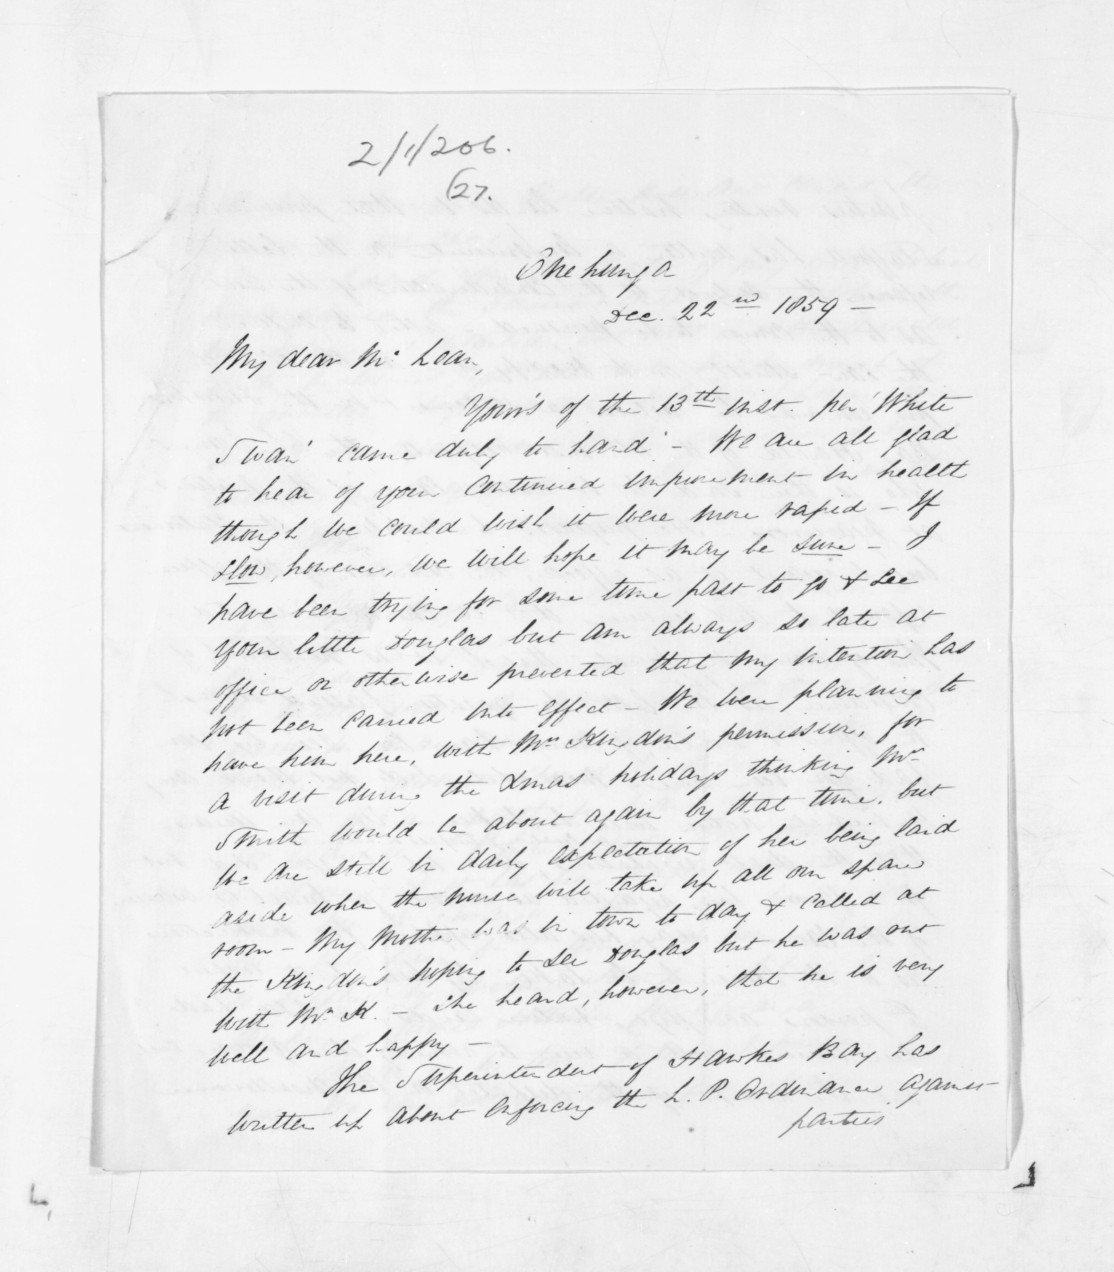 2/1/206.
(27.
Onehunga
Dec. 22nd 1859 –
My dear Mc Lean,
Your's of the 13th inst. per 'White
Swan' came duly to hand – We are all glad
to hear of your continued improvement in health
though we could wish it were more rapid – If
slow, however, we will hope it may be sure – I
have been trying for some time past to go & see
your little Douglas but am always so late at
office or otherwise prevented that my intention has
not been carried into effect – We were planning to
have him here, with Mrs Kingdon's permission, for
a visit during the Xmas holidays thinking Mrs
Smith would be about again by that time, but
we are still in daily expectation of her being laid
aside when the nurse will take up all our spare
room – My Mother was in town to day & called at
the Kingdon's hoping to see Douglas but he was out
with Mr K. – She heard, however, that he is very
well and happy –
The Superintendent of Hawkes Bay has
written up about enforcing the L. P. Ordinance against
parties